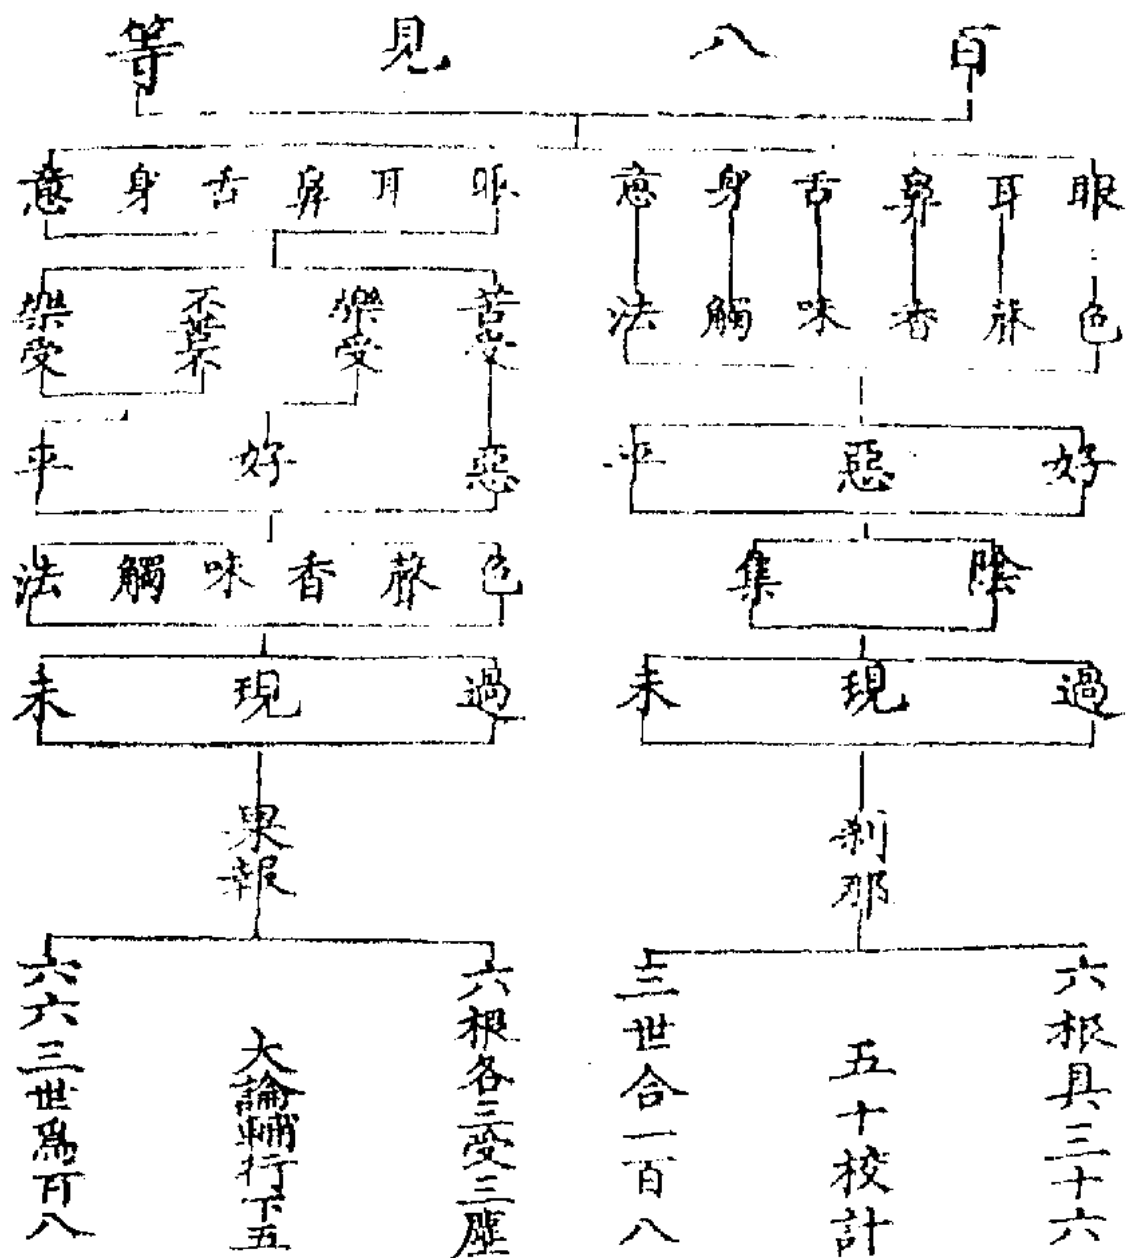 百八見等
眼耳鼻舌身意
色聲香味觸法
好惡平
陰集
過現未
剎那
六根具三十六
五十校計
三世合一百八
眼耳鼻舌身意
苦受
樂受
不苦不
樂受
惡好平
色聲香味觸法
過現未
果報
六根各三受三塵
大論輔行下五
六六三世爲百八